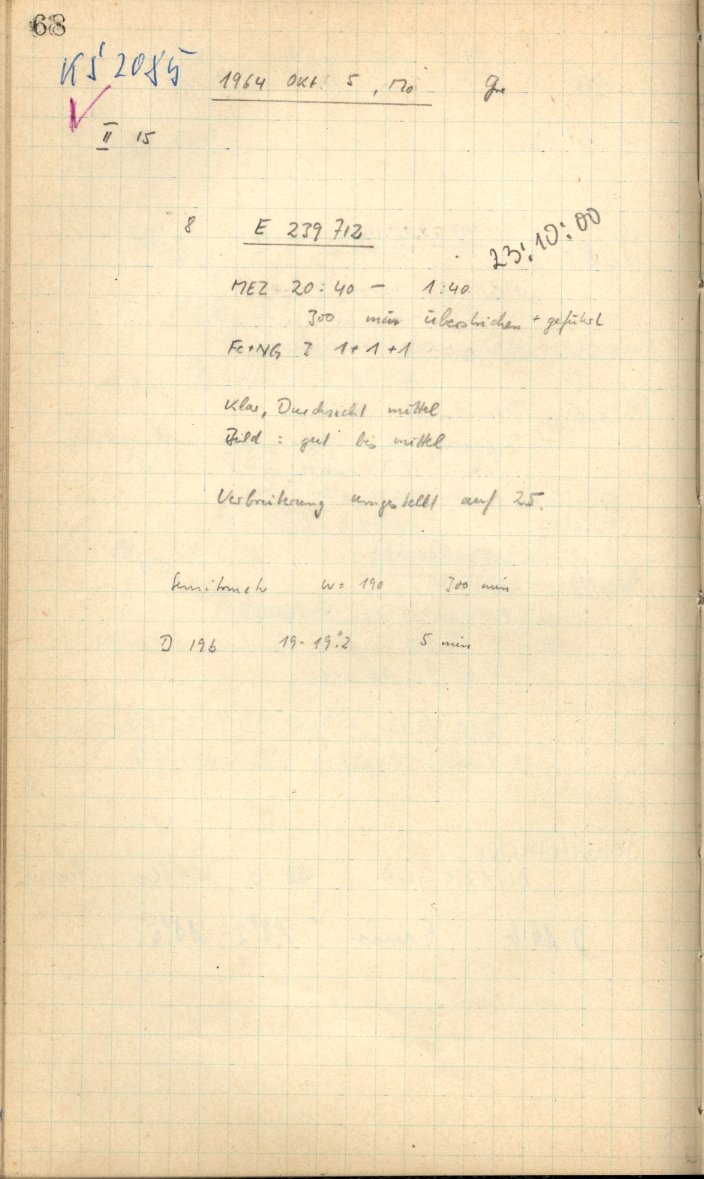 68
KŠ 2085
1964 Okt. 5, Mo Gre
II 15
8 E 239 712
23:10:00
MEZ 20:40 - 1:40
300 min überstrichen + geführt
Fe+NG I 1+1+1
Klar, Durchsicht mittel
Bild: gut bis mittel
Verbreiterung umgestellt auf 25.
Sensitometer w= 190 300 min
D 196 19-19.°2 5 min